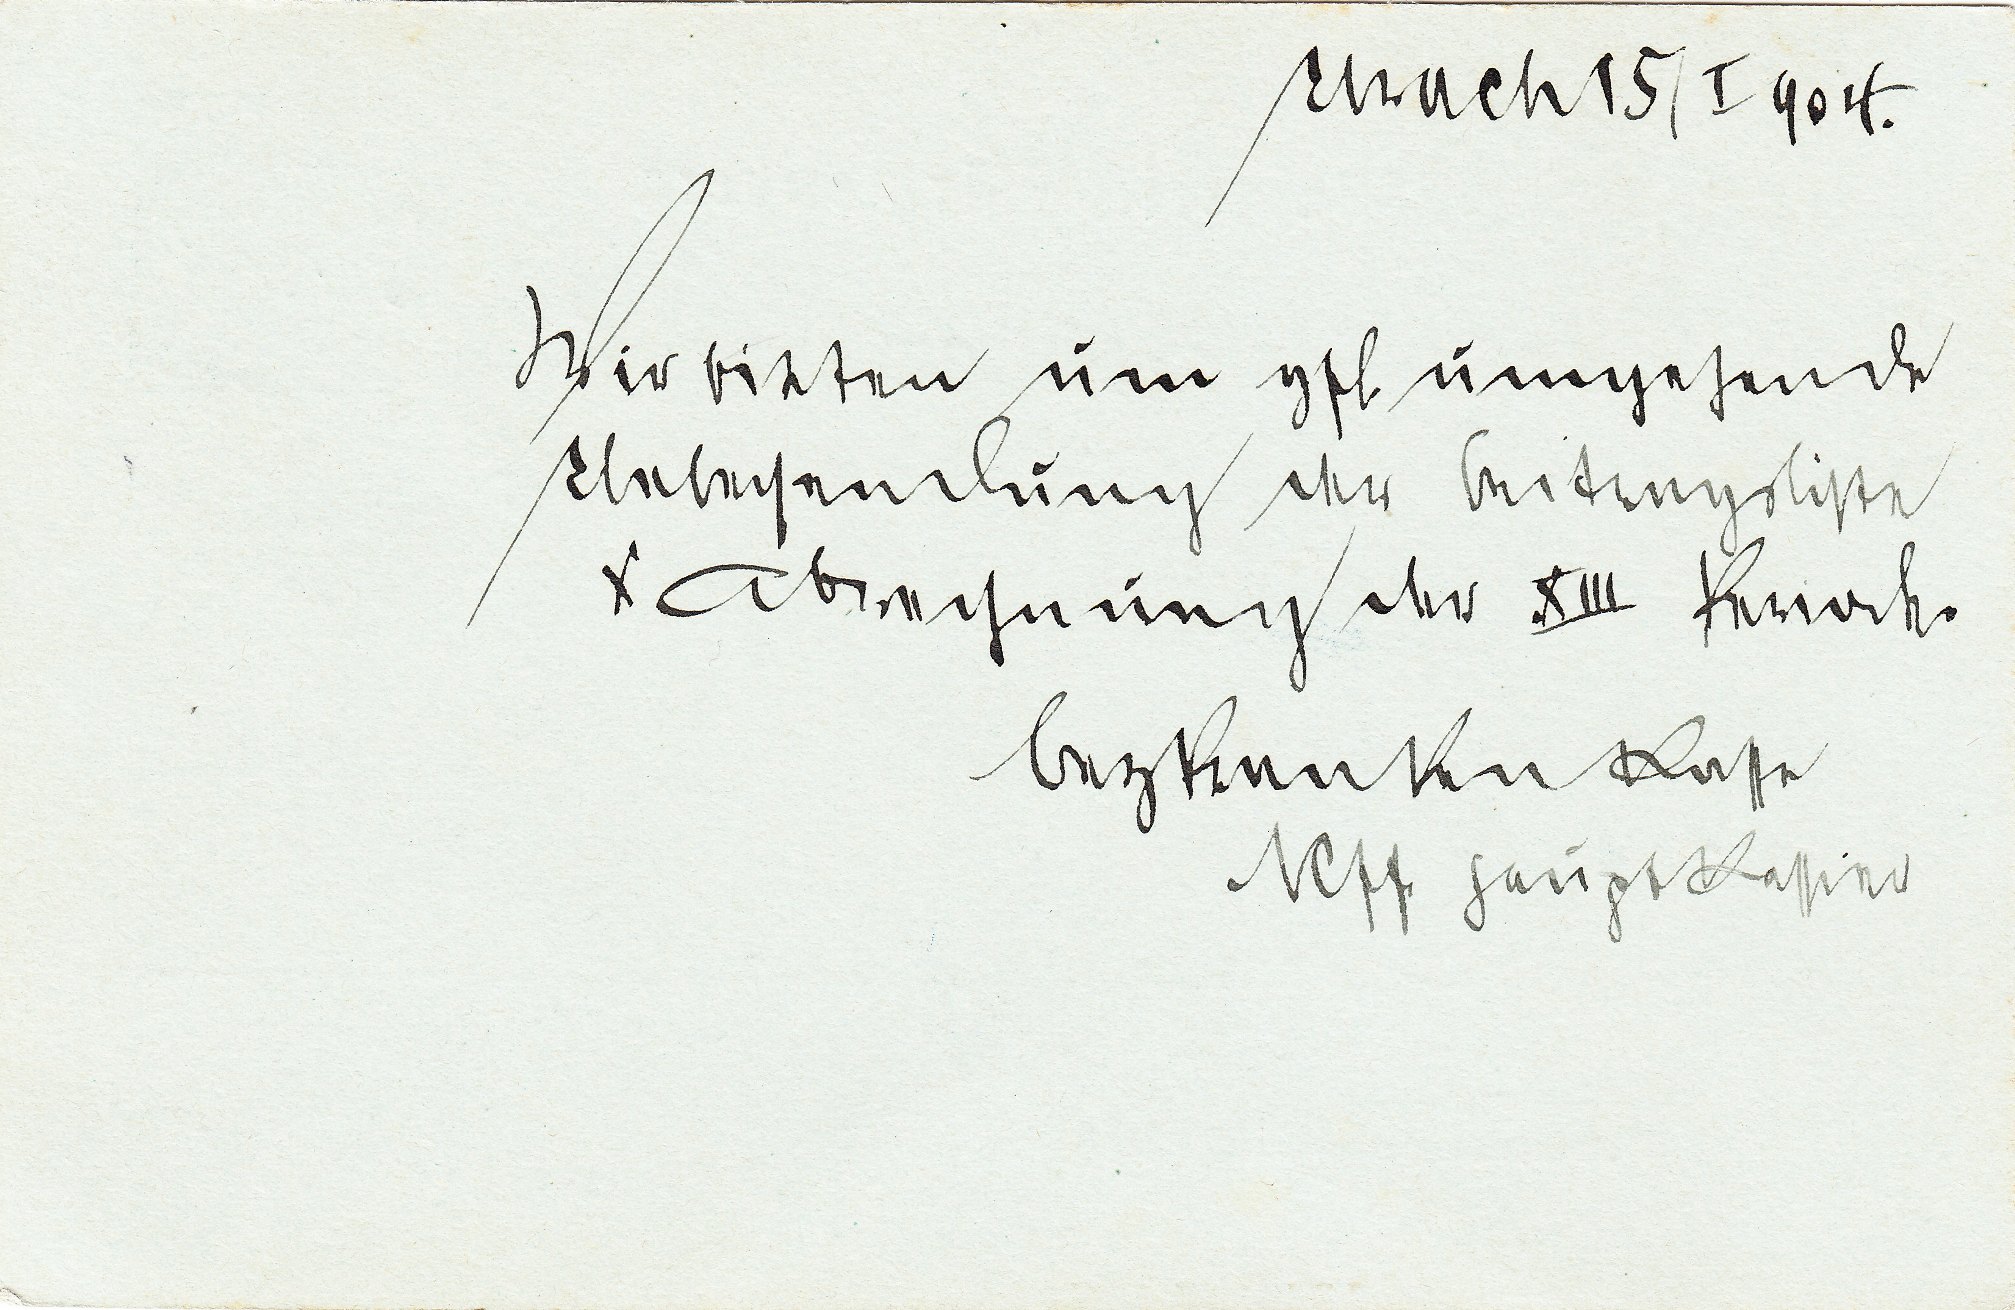 Urach 15/I 904.
Wir bitten um gfl. umgehende
Uebersendung der Beitragsliste
& Abrechnung der XIII Periode.
BezKrankenKasse
Neff HauptKassier